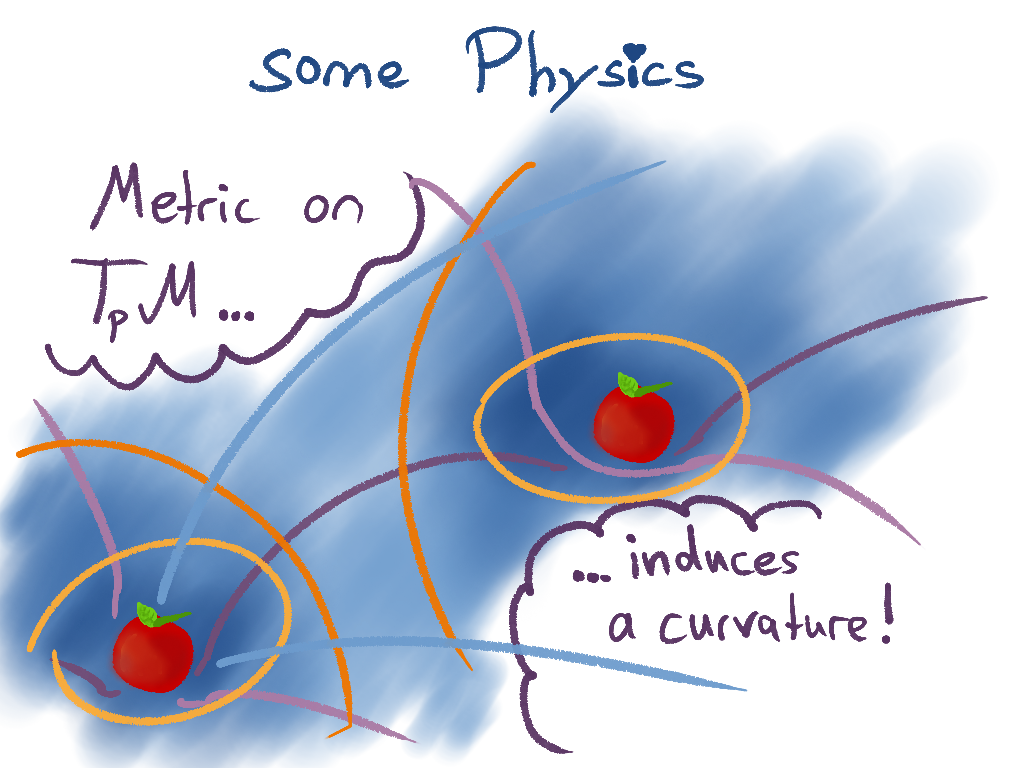 some Physics
Metric on
TpM ...
... induces
a curvature!